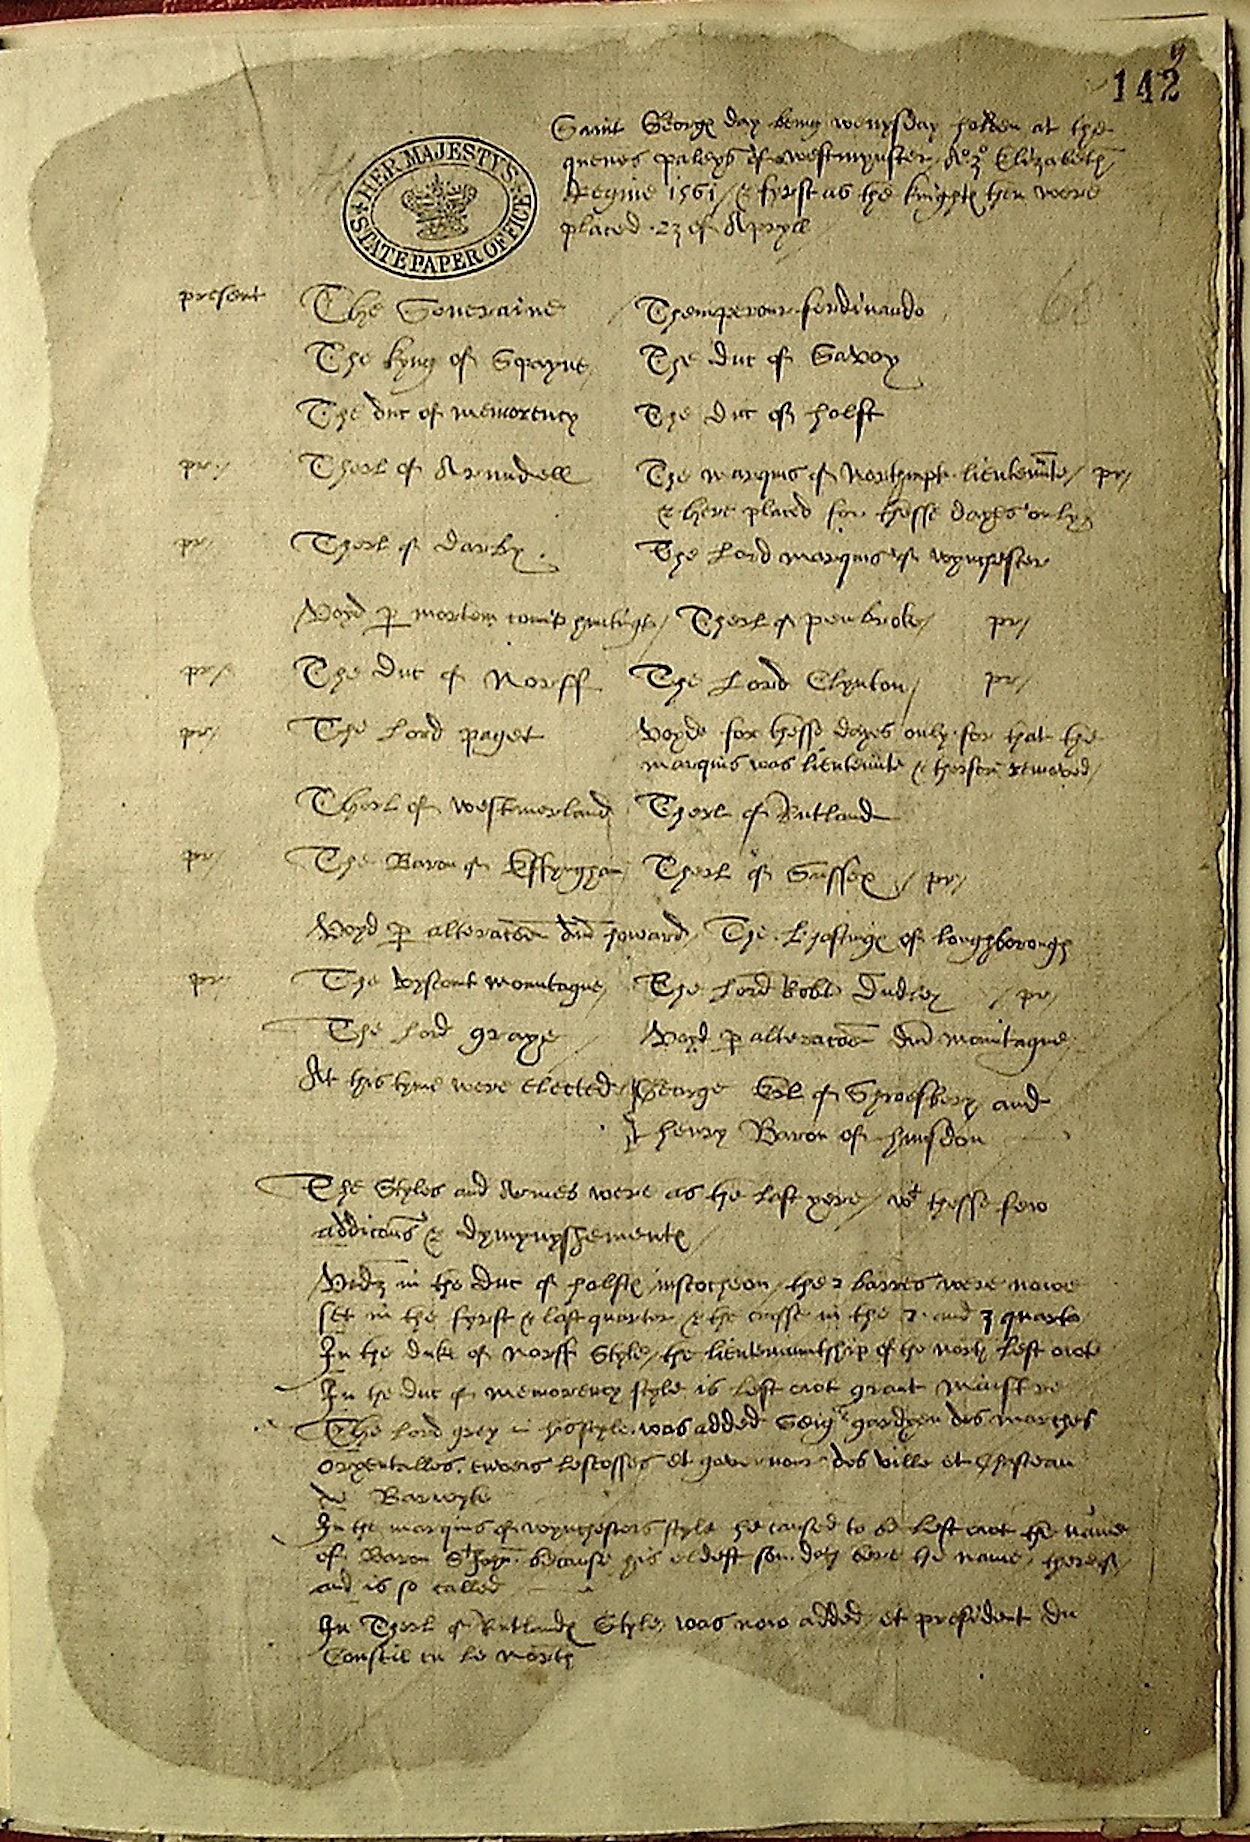 142
HER MAJESTY'S STATE PAPER OFFICE
Saint George day being wenysday holden at the
quenes paleys of westmynster A° 3° Elizabeth
Regine 1561 / & fyrst as the knightes then were
placed 23 of Apryll
present The Soueraine / Themperour ferdinando
60
The kyng of Spayne, The duc of Savoy
The duc of memorency The duc of holst
pr / Therl of Arundell The marquis of Northampt lieutennte / pr /
& here placed for thesse dayes only
pr / Therl of darby. The Lord marquis of wynchester
Voyd p mortem comit huntingt / Therl of penbroke / pr /
pr / The duc of Norff The Lord Clynton / pr /
pr / The Lord paget Voyde for thesse dayes only for that the
marquis was lieutennte & therfore removed /
Therl of westmerland Therl of Rutland
pr / The Baron of Effyngham Therl of Sussex // pr /
Voyd p alteracoen dni howard / The L hastinges of loughborough
pr / The vyscont montague / The Lord Robt Dudley / pr /
The Lord graye Voyd p alteracoen dni montague
At this tyme were elected George Erl of Shroesbery and
henry Baron of hunsdon
The Styles and Armes were as the last yere / wt thesse few
addicons & dymynyshementes /
Vidz in the duc of holstes inscocheon / the 2 barres were nowe
set in the fyrst & last quarter & the crosse in the 2 and 3 quarto
In the duke of norff Style / the lieutenauntship of the north left owt
In the duc of memorency style is left owt grant maistre
The Lord grey in his style was added Seigr gardyen des marches
oryentalles envers lescosses et governour des ville et chasteau
de Barwyke
In the marquis of wynchesters style he caused to be left owt the name
of Baron St John because his eldest son doth bere the name therof /
and is so called
In Therl of Rutlandes Style was now added et president du
Conseil en le North